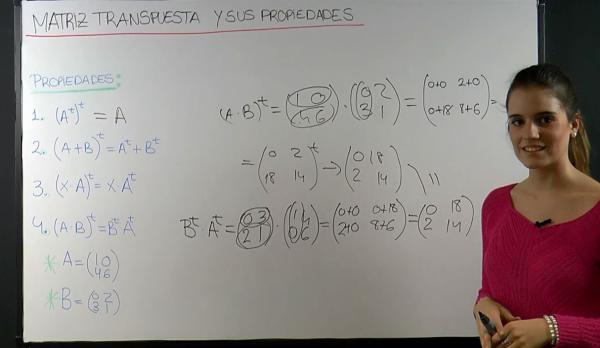 MATRIZ TRANSPUESTA Y SUS PROPIEDADES
PROPIEDADES:
1. (Aᵗ)ᵗ = A
2. (A+B)ᵗ = Aᵗ + Bᵗ
3. (x·A)ᵗ = x·Aᵗ
4. (A·B)ᵗ = Bᵗ Aᵗ
* A = (1 0
4 6)
* B = (0 2
3 1)
(A·B)ᵗ = (1 0
4 6) · (0 2
3 1) = (0+0 2+0
0+18 8+6) =
= (0 2
18 14)ᵗ → (0 18
2 14)
\\
Bᵗ·Aᵗ = (0 3
2 1) · (1 4
0 6) = (0+0 0+18
2+0 8+6) = (0 18
2 14)